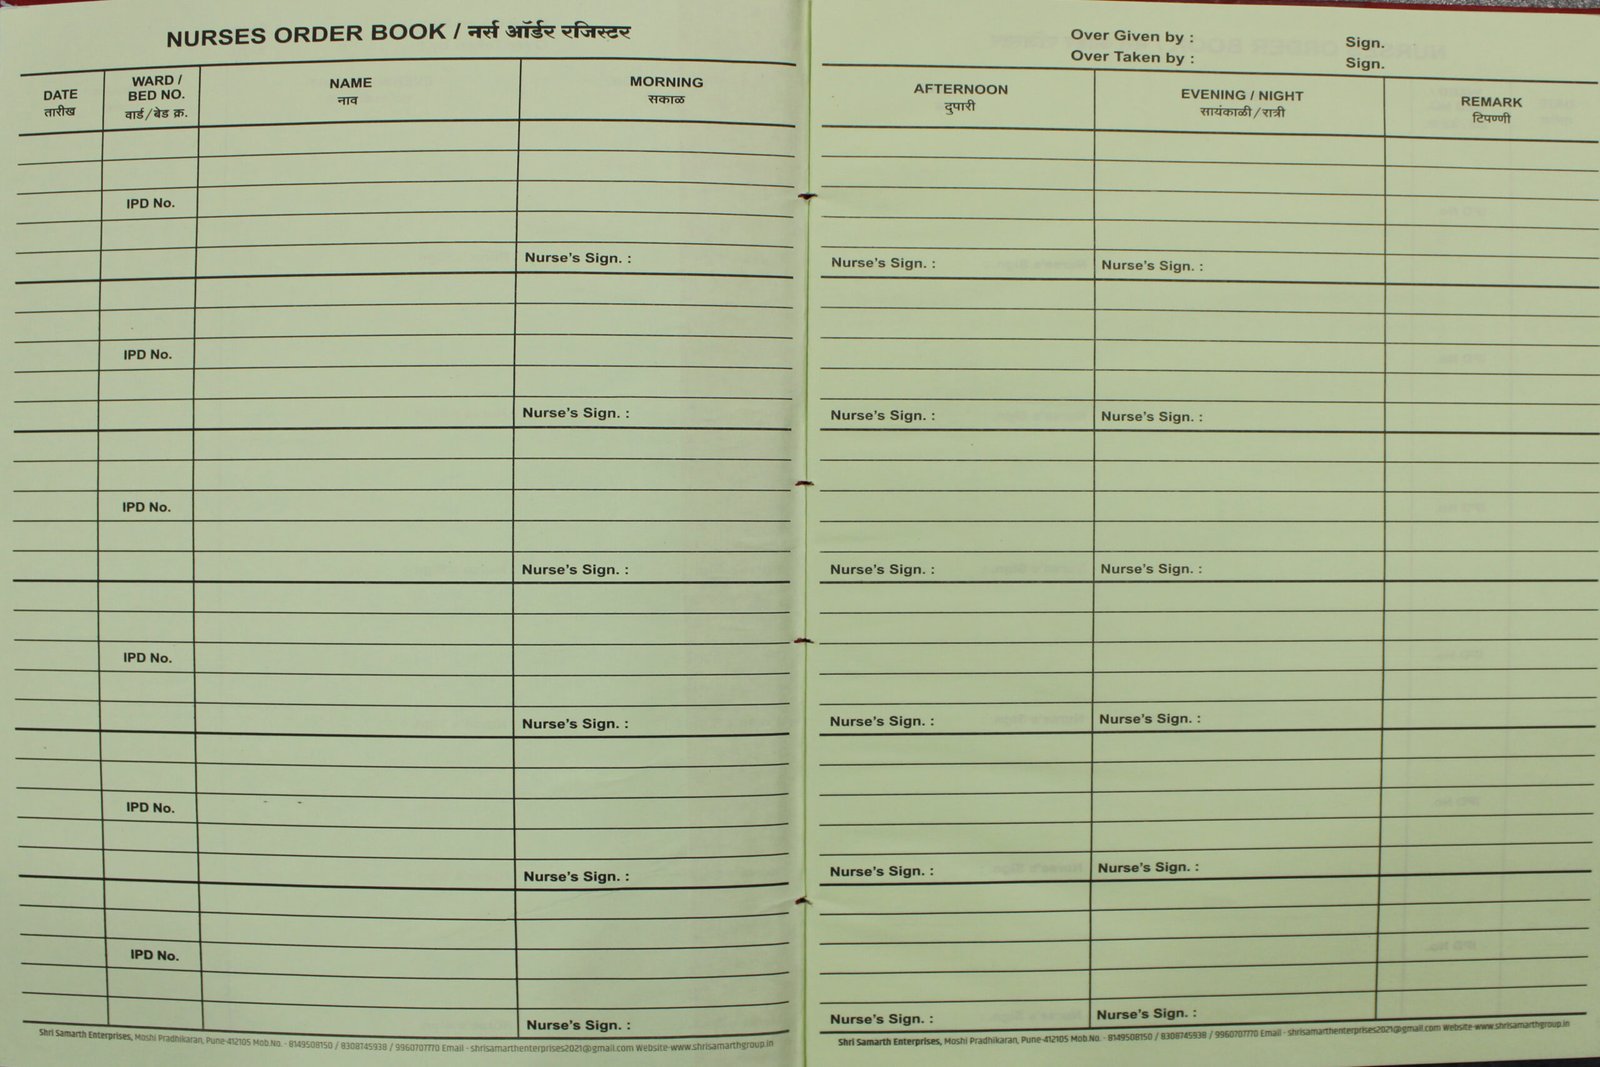 NURSES ORDER BOOK / नर्स ऑर्डर रजिस्टर
DATE
तारीख
WARD /
BED NO.
वार्ड / बेड क्र.
NAME
नाव
MORNING
सकाळ
IPD No.
Nurse's Sign. :
IPD No.
Nurse's Sign. :
IPD No.
Nurse's Sign. :
IPD No.
Nurse's Sign. :
IPD No.
Nurse's Sign. :
IPD No.
Nurse's Sign. :
Shri Samarth Enterprises, Moshi Pradhikaran, Pune-412105 Mob.No. - 8149508150 / 8308745938 / 9960707770 Email - shrisamarthenterprises2021@gmail.com Website-www.shrisamarthgroup.in
Over Given by : Sign.
Over Taken by : Sign.
AFTERNOON
दुपारी
EVENING / NIGHT
सायंकाळी / रात्री
REMARK
टिपण्णी
Nurse's Sign. : Nurse's Sign. :
Nurse's Sign. : Nurse's Sign. :
Nurse's Sign. : Nurse's Sign. :
Nurse's Sign. : Nurse's Sign. :
Nurse's Sign. : Nurse's Sign. :
Nurse's Sign. : Nurse's Sign. :
Shri Samarth Enterprises, Moshi Pradhikaran, Pune-412105 Mob.No. - 8149508150 / 8308745938 / 9960707770 Email - shrisamarthenterprises2021@gmail.com Website-www.shrisamarthgroup.in